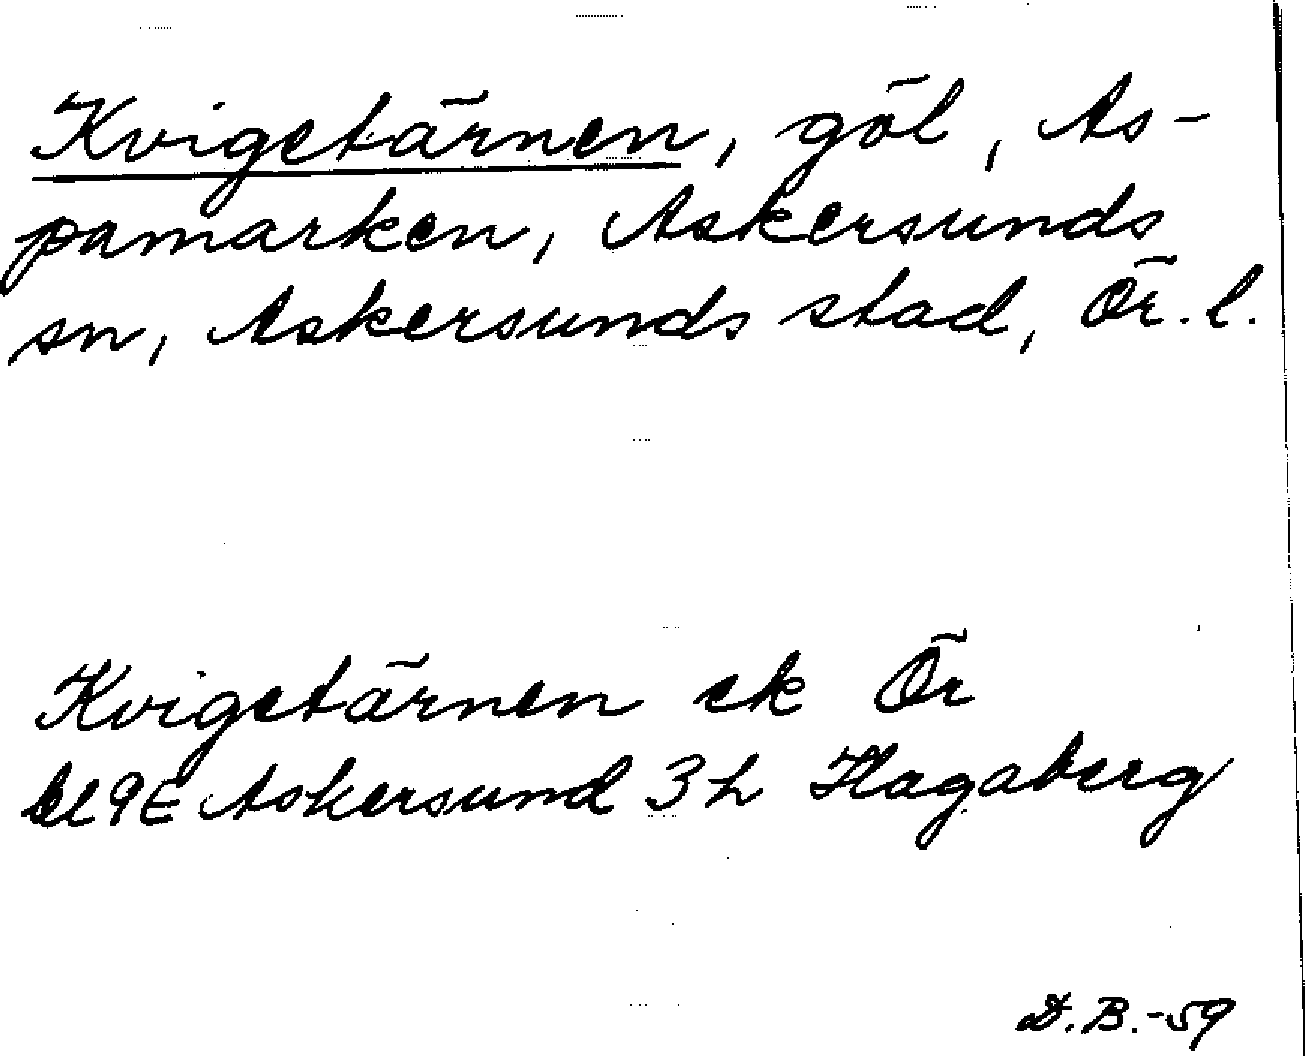 Kvigetärnen, göl, As-
pamarken, Askersunds
sn, Askersunds stad, Ör. l.
Kvigetärnen ek Ör
bl 9E Askersund 3h Hagaberg
D.B.-59